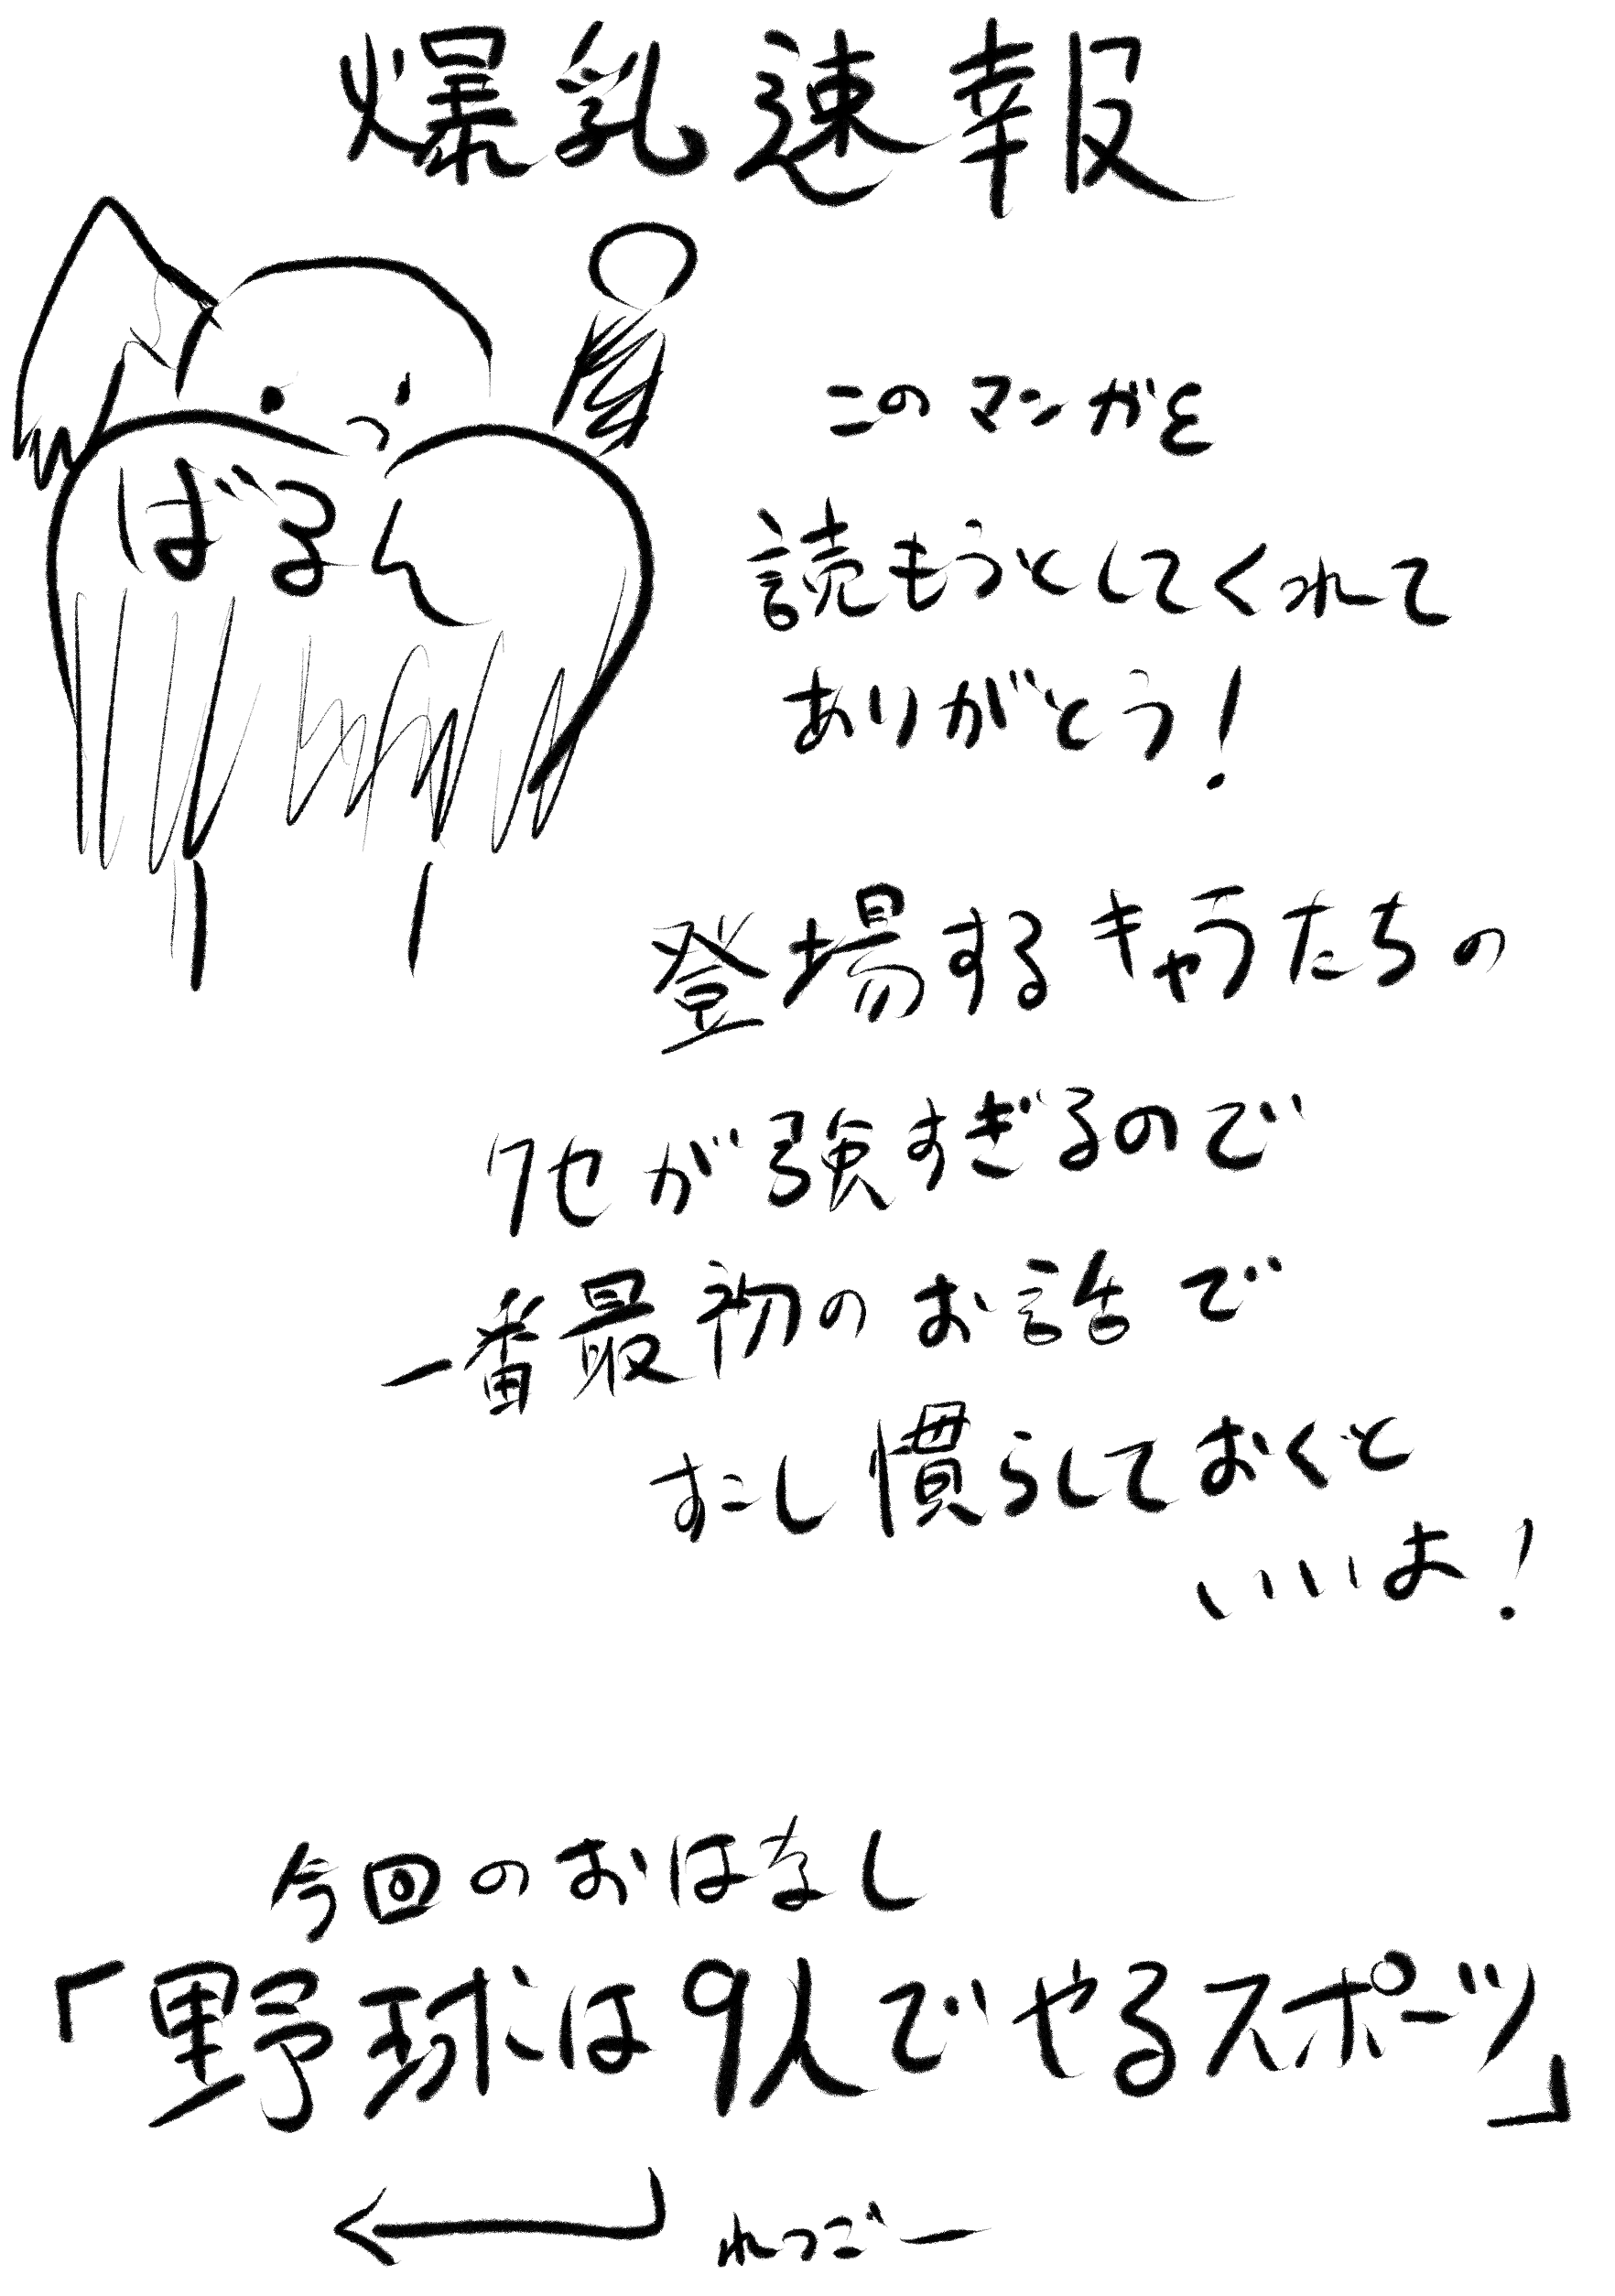 爆乳速報
ばるん
このマンガを
読もうとしてくれて
ありがとう!
登場するキャラたちの
クセが強すぎるので
一番最初のお話で
すこし慣らしておくと
いいよ!
今回のおはなし
「野球は9人でやるスポーツ」
れつごー